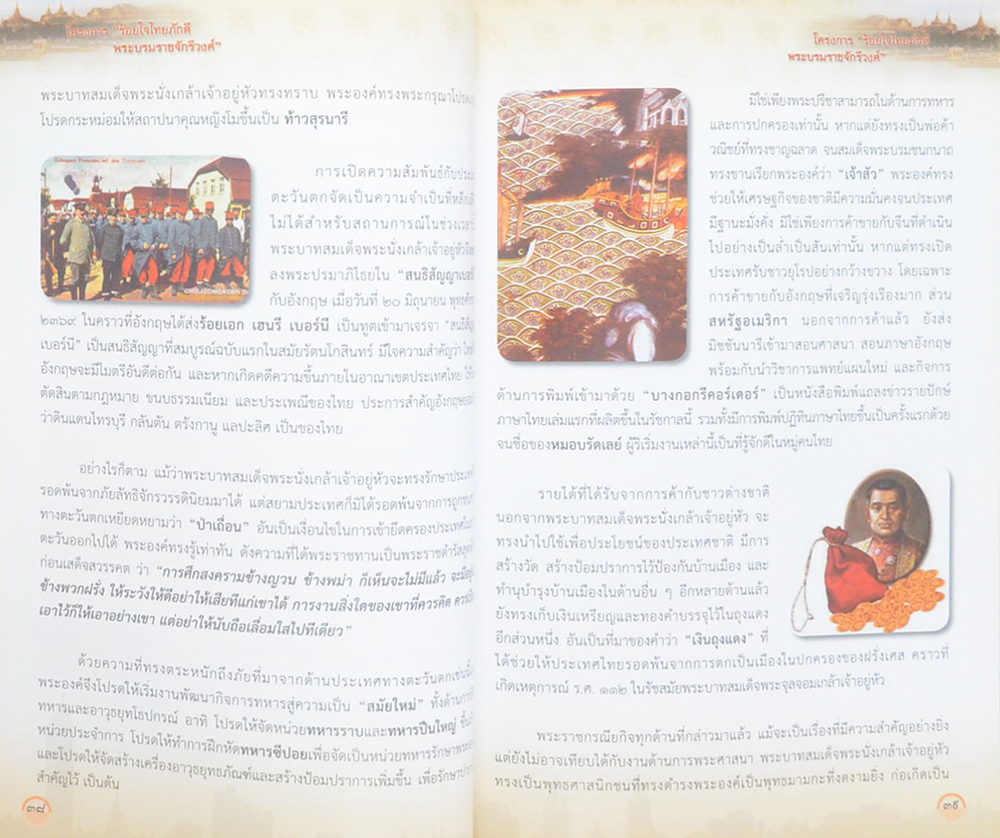 โครงการ “ร้อยใจไทยภักดี
พระบรมราชจักรีวงศ์”
พระบาทสมเด็จพระนั่งเกล้าเจ้าอยู่หัวทรงทราบ พระองค์ทรงพระกรุณาโปรด
โปรดกระหม่อมให้สถาปนาคุณหญิงโมขึ้นเป็น ท้าวสุรนารี
การเปิดความสัมพันธ์กับประ
ตะวันตกจัดเป็นความจำเป็นที่หลีก
ไม่ได้สำหรับสถานการณ์ในช่วงเวลา
พระบาทสมเด็จพระนั่งเกล้าเจ้าอยู่หัว
ลงพระปรมาภิไธยใน “สนธิสัญญาเบอร์
กับอังกฤษ เมื่อวันที่ ๒๐ มิถุนายน
๒๓๖๙ ในคราวที่อังกฤษได้ส่งร้อยเอก เฮนรี เบอร์นี เป็นทูตเข้ามาเจรจา “สนธิ
เบอร์นี” เป็นสนธิสัญญาที่สมบูรณ์ฉบับแรกในสมัยรัตนโกสินทร์ มีใจความสำคัญว่า
อังกฤษจะมีไมตรีอันดีต่อกัน และหากเกิดคดีความขึ้นภายในอาณาเขตประเทศไทย
ตัดสินตามกฎหมาย ขนบธรรมเนียม และประเพณีของไทย ประการสำคัญอังกฤษ
ว่าดินแดนไทรบุรี กลันตัน ตรังกานู แลปะลิศ เป็นของไทย
อย่างไรก็ตาม แม้ว่าพระบาทสมเด็จพระนั่งเกล้าเจ้าอยู่หัวจะทรงรักษาประเทศ
รอดพ้นจากภัยลัทธิจักรวรรดินิยมมาได้ แต่สยามประเทศก็มิได้รอดพ้นจากการถูก
ทางตะวันตกเหยียดหยามว่า “ป่าเถื่อน” อันเป็นเงื่อนไขในการเข้ายึดครองประเทศ
ตะวันออกไปได้ พระองค์ทรงรู้เท่าทัน ดังความที่ได้พระราชทานเป็นพระราชดำรัส
ก่อนเสด็จสวรรคต ว่า “การศึกสงครามข้างญวน ข้างพม่า ก็เห็นจะไม่มีแล้ว
ข้างพวกฝรั่ง ให้ระวังให้ดีอย่าให้เสียทีแก่เขาได้ การงานสิ่งใดของเขาที่ควรคิด
เอาไว้ก็ให้เอาอย่างเขา แต่อย่าให้นับถือเลื่อมใสไปทีเดียว”
ด้วยความที่ทรงตระหนักถึงภัยที่มาจากด้านประเทศทางตะวันตกเช่นนี้
พระองค์จึงโปรดให้เริ่มงานพัฒนากิจการทหารสู่ความเป็น “สมัยใหม่” ทั้งด้าน
ทหารและอาวุธยุทโธปกรณ์ อาทิ โปรดให้จัดหน่วยทหารราบและทหารปืนใหญ่
หน่วยประจำการ โปรดให้ทำการฝึกหัดทหารซีปอยเพื่อจัดเป็นหน่วยทหารรักษา
และโปรดให้จัดสร้างเครื่องอาวุธยุทธภัณฑ์และสร้างป้อมปราการเพิ่มขึ้น เพื่อรักษา
สำคัญไว้ เป็นต้น
๓๘
โครงการ “ร้อยใจไทยภักดี
พระบรมราชจักรีวงศ์”
มิใช่เพียงพระปรีชาสามารถในด้านการทหาร
และการปกครองเท่านั้น หากแต่ยังทรงเป็นพ่อค้า
วณิชย์ที่ทรงชาญฉลาด จนสมเด็จพระบรมชนกนาถ
ทรงขานเรียกพระองค์ว่า “เจ้าสัว” พระองค์ทรง
ช่วยให้เศรษฐกิจของชาติมีความมั่นคงจนประเทศ
มีฐานะมั่งคั่ง มิใช่เพียงการค้าขายกับจีนที่ดำเนิน
ไปอย่างเป็นล่ำเป็นสันเท่านั้น หากแต่ทรงเปิด
ประเทศรับชาวยุโรปอย่างกว้างขวาง โดยเฉพาะ
การค้าขายกับอังกฤษที่เจริญรุ่งเรืองมาก ส่วน
สหรัฐอเมริกา นอกจากการค้าแล้ว ยังส่ง
มิชชันนารีเข้ามาสอนศาสนา สอนภาษาอังกฤษ
พร้อมกับนำวิชาการแพทย์แผนใหม่ และกิจการ
ด้านการพิมพ์เข้ามาด้วย “บางกอกรีคอร์เดอร์” เป็นหนังสือพิมพ์แถลงข่าวรายปักษ์
ภาษาไทยเล่มแรกที่ผลิตขึ้นในรัชกาลนี้ รวมทั้งมีการพิมพ์ปฏิทินภาษาไทยขึ้นเป็นครั้งแรกด้วย
จนชื่อของหมอบรัดเลย์ ผู้ริเริ่มงานเหล่านี้เป็นที่รู้จักดีในหมู่คนไทย
รายได้ที่ได้รับจากการค้ากับชาวต่างชาติ
นอกจากพระบาทสมเด็จพระนั่งเกล้าเจ้าอยู่หัว จะ
ทรงนำไปใช้เพื่อประโยชน์ของประเทศชาติ มีการ
สร้างวัด สร้างป้อมปราการไว้ป้องกันบ้านเมือง และ
ทำนุบำรุงบ้านเมืองในด้านอื่น ๆ อีกหลายด้านแล้ว
ยังทรงเก็บเงินเหรียญและทองคำบรรจุไว้ในถุงแดง
อีกส่วนหนึ่ง อันเป็นที่มาของคำว่า “เงินถุงแดง” ที่
ได้ช่วยให้ประเทศไทยรอดพ้นจากการตกเป็นเมืองในปกครองของฝรั่งเศส คราวที่
เกิดเหตุการณ์ ร.ศ. ๑๑๒ ในรัชสมัยพระบาทสมเด็จพระจุลจอมเกล้าเจ้าอยู่หัว
พระราชกรณียกิจทุกด้านที่กล่าวมาแล้ว แม้จะเป็นเรื่องที่มีความสำคัญอย่างยิ่ง
แต่ยังไม่อาจเทียบได้กับงานด้านการพระศาสนา พระบาทสมเด็จพระนั่งเกล้าเจ้าอยู่หัว
ทรงเป็นพุทธศาสนิกชนที่ทรงดำรงพระองค์เป็นพุทธมามกะที่งดงามยิ่ง ก่อเกิดเป็น
๓๙